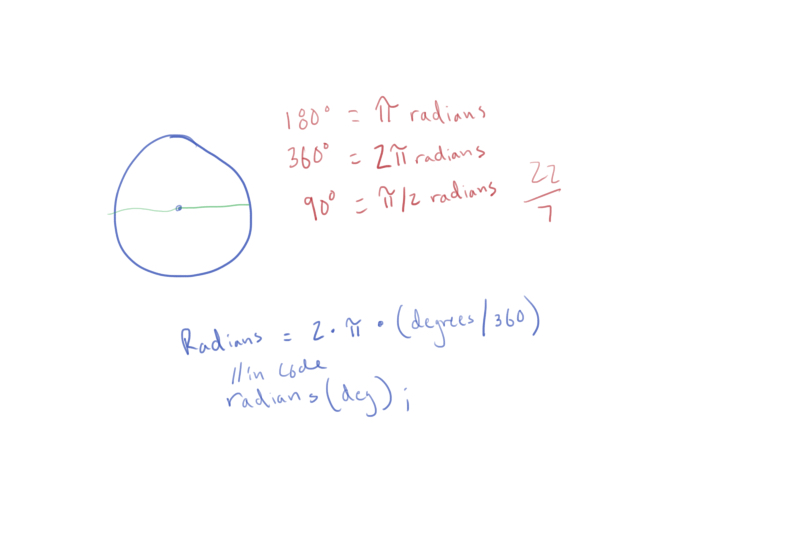 180° = π radians
360° = 2π radians
90° = π/2 radians
22/7
Radians = 2 · π · (degrees/360)
//in code
radians(deg);